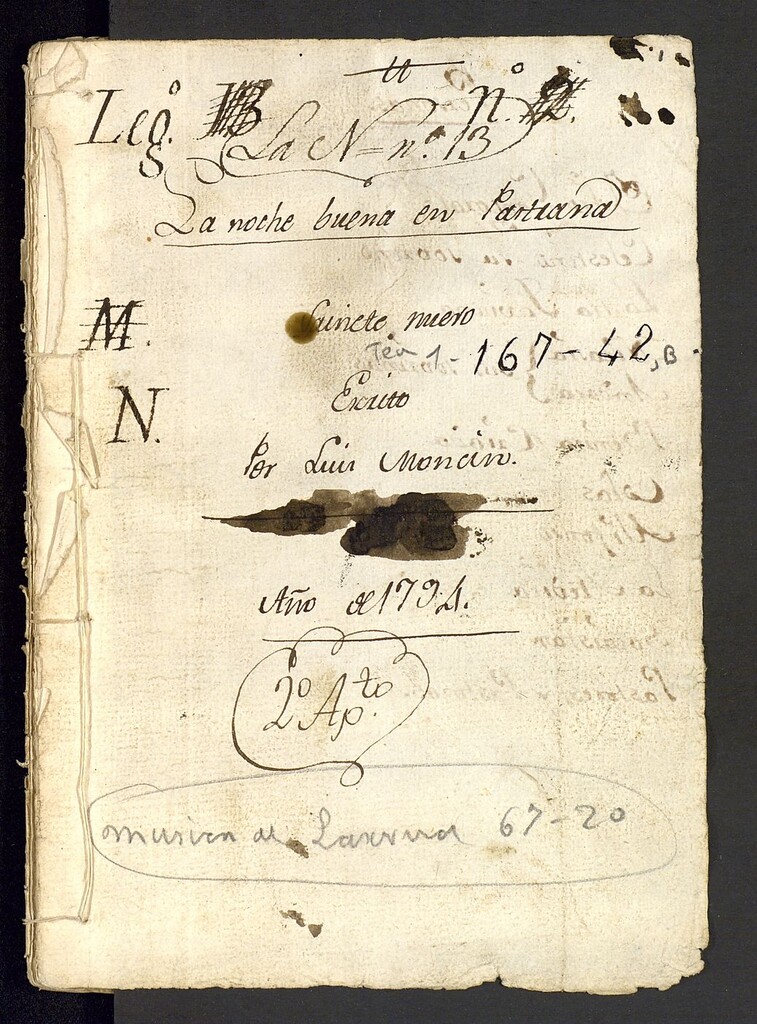 Leg.º nº.
La N= nº 13
La noche buena en Pastrana
M.
Sainete nuevo
Tea 1-167-42, B
N.
Escrito
Por Luis Moncin.
Año de 1794.
2º Ap.to
musica de Laserna 67-20